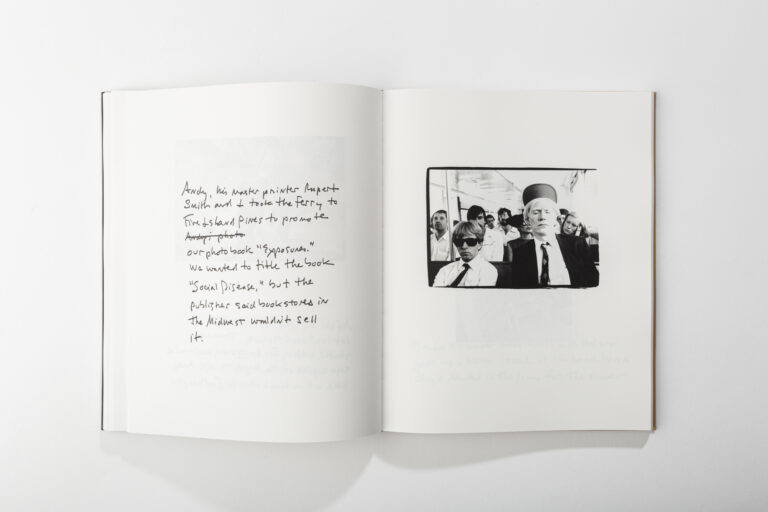 Andy, his master printer Rupert
Smith and I took the ferry to
Fire Island Pines to promote
Andy's photo
our photobook "Exposures."
We wanted to title the book
"Social Disease," but the
publisher said bookstores in
the Midwest wouldn't sell
it.